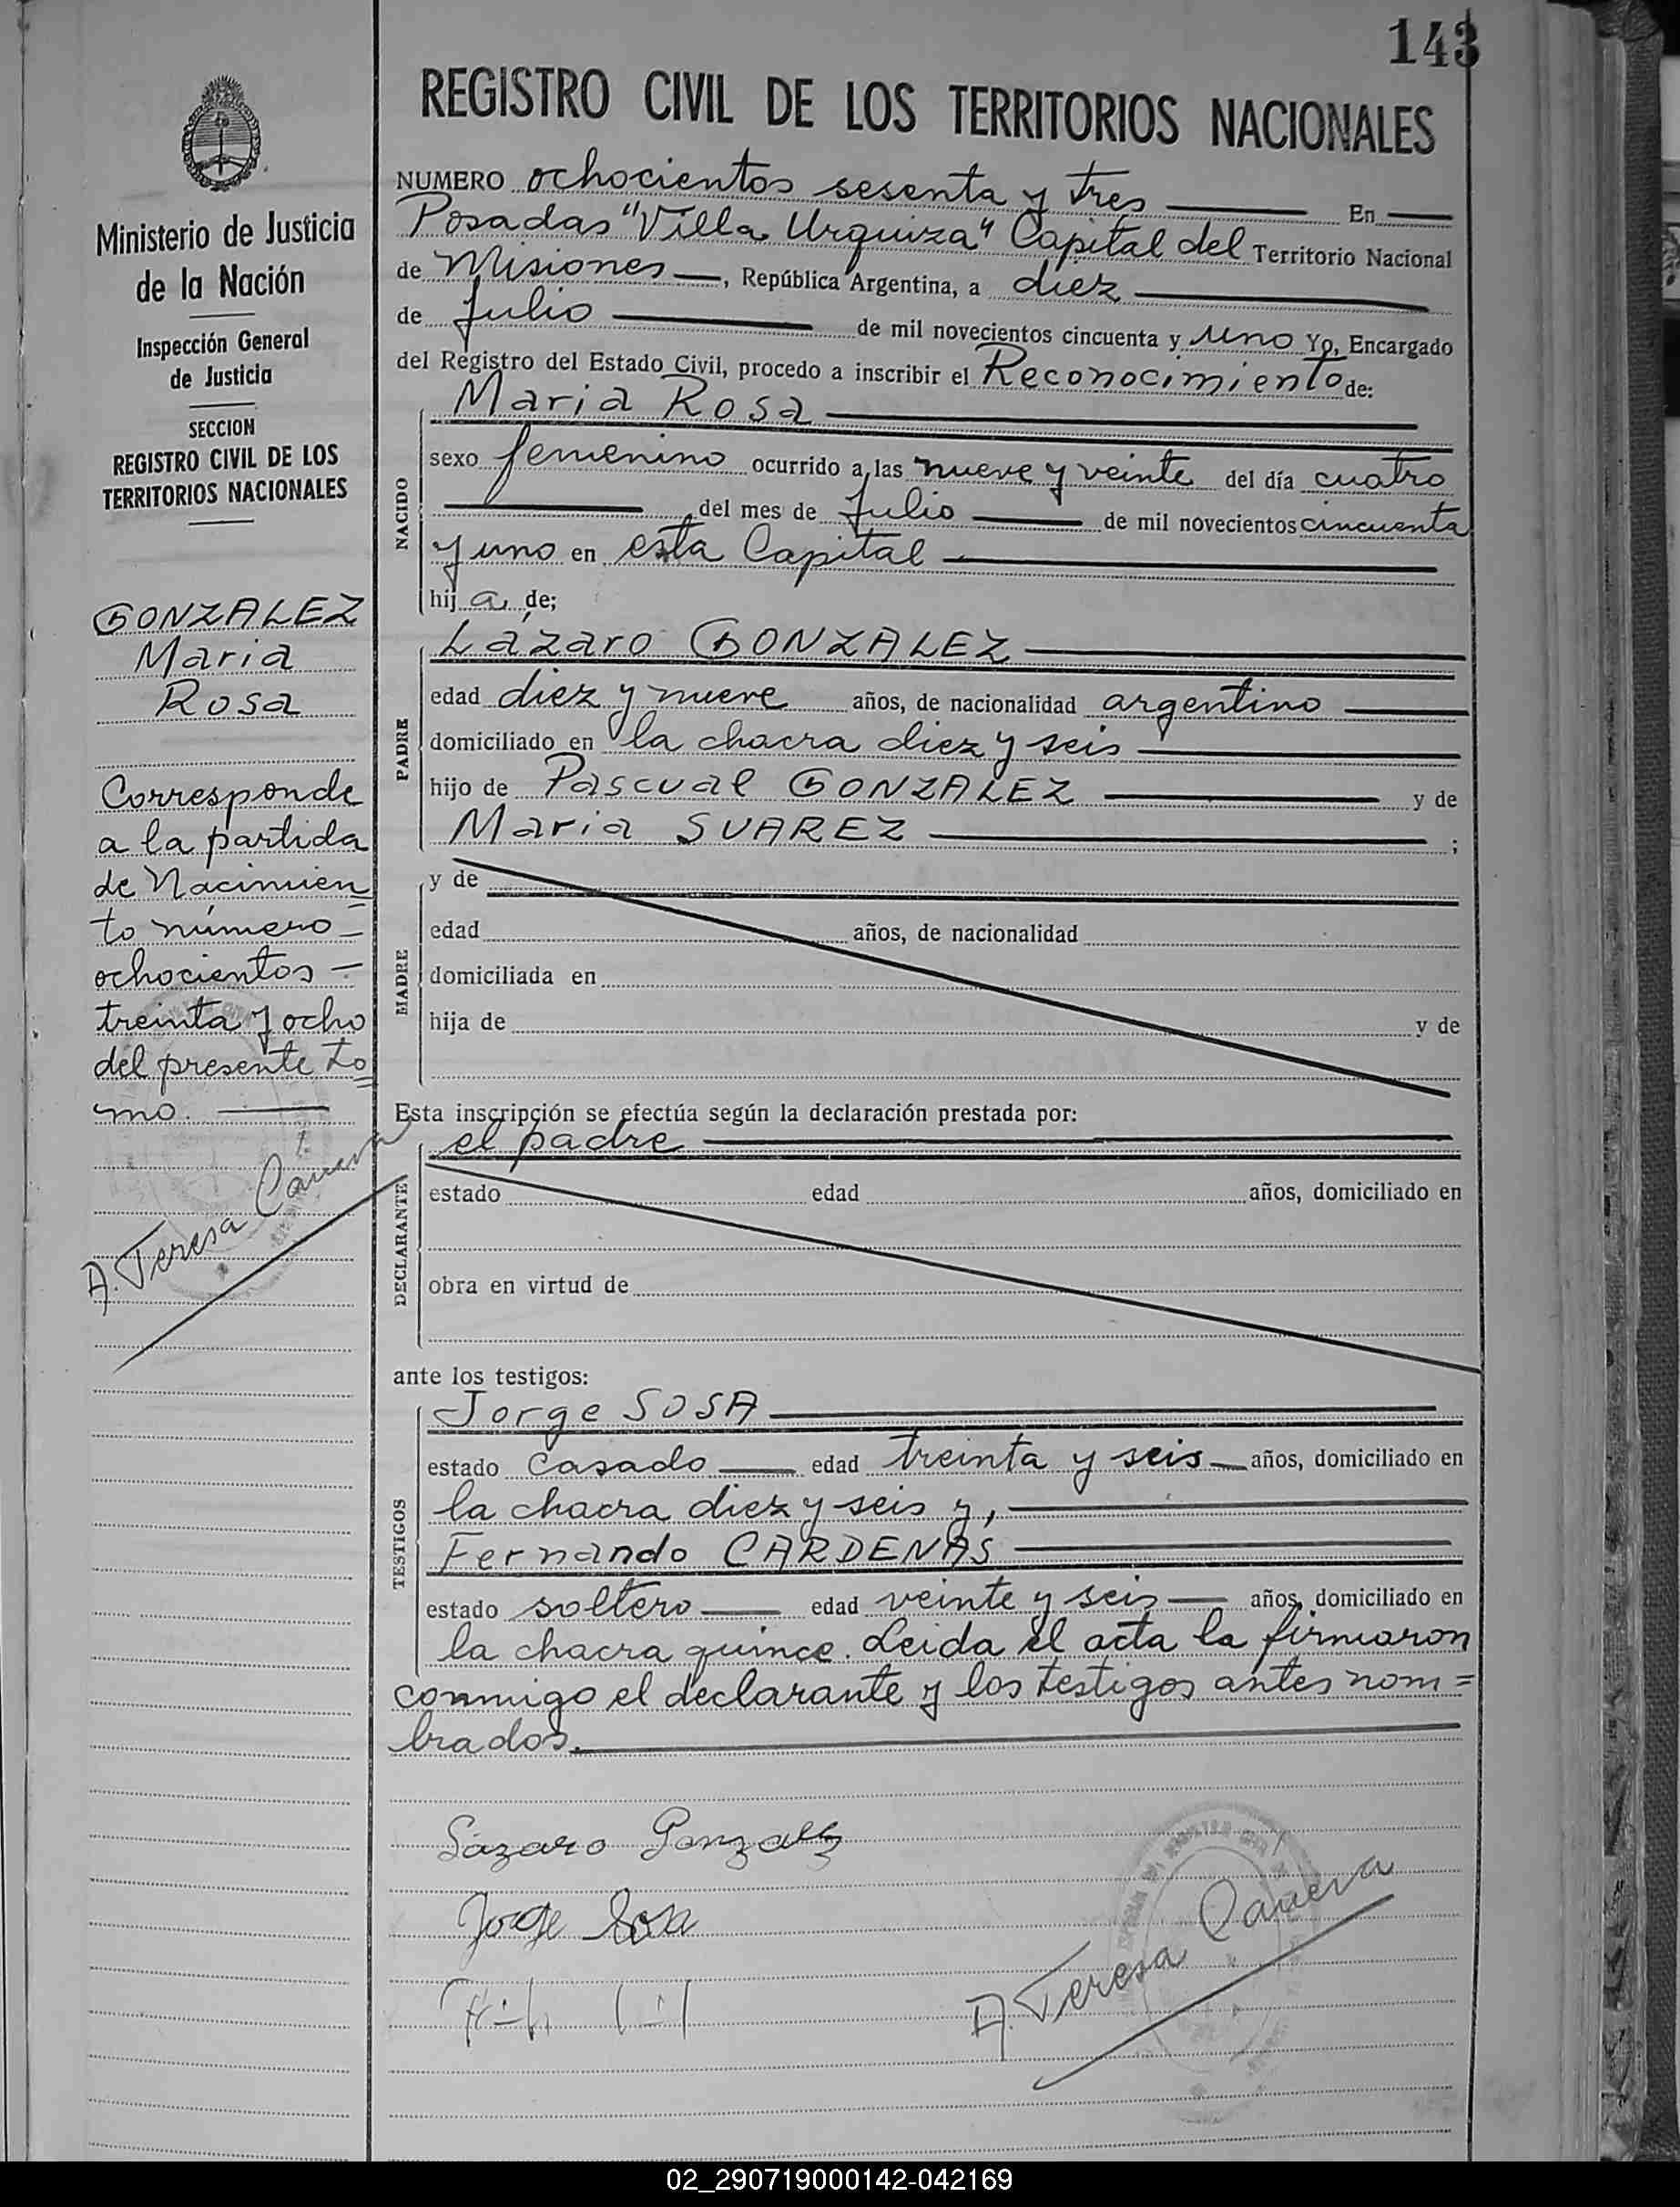 143
REGISTRO CIVIL DE LOS TERRITORIOS NACIONALES
Ministerio de Justicia
de la Nación
Inspección General
de Justicia
SECCION
REGISTRO CIVIL DE LOS
TERRITORIOS NACIONALES
GONZALEZ
Maria
Rosa
Corresponde
a la partida
de Nacimien=
to número
ochocientos
treinta y ocho
del presente to=
mo.
A. Teresa
NUMERO ochocientos sesenta y tres En
Posadas "Villa Urquiza" Capital del Territorio Nacional
de Misiones, República Argentina, a diez
de Julio de mil novecientos cincuenta y uno Yo, Encargado
del Registro del Estado Civil, procedo a inscribir el Reconocimiento de:
NACIDO
Maria Rosa
sexo femenino ocurrido a las nueve y veinte del día cuatro
del mes de Julio de mil novecientos cincuenta
y uno en esta Capital
hij a de;
PADRE
Lázaro GONZALEZ
edad diez y nueve años, de nacionalidad argentino
domiciliado en la chacra diez y seis
hijo de Pascual GONZALEZ y de
Maria SUAREZ ;
MADRE
y de
edad años, de nacionalidad
domiciliada en
hija de y de
Esta inscripción se efectúa según la declaración prestada por:
DECLARANTE
el padre
estado edad años, domiciliado en
obra en virtud de
ante los testigos:
TESTIGOS
Jorge SOSA
estado casado edad treinta y seis años, domiciliado en
la chacra diez y seis y,
Fernando CARDENAS
estado soltero edad veinte y seis años, domiciliado en
la chacra quince. Leida el acta la firmaron
conmigo el declarante y los testigos antes nom=
brados.
Lázaro Gonzalez
Jorge Sosa
A. Teresa
02_290719000142-042169